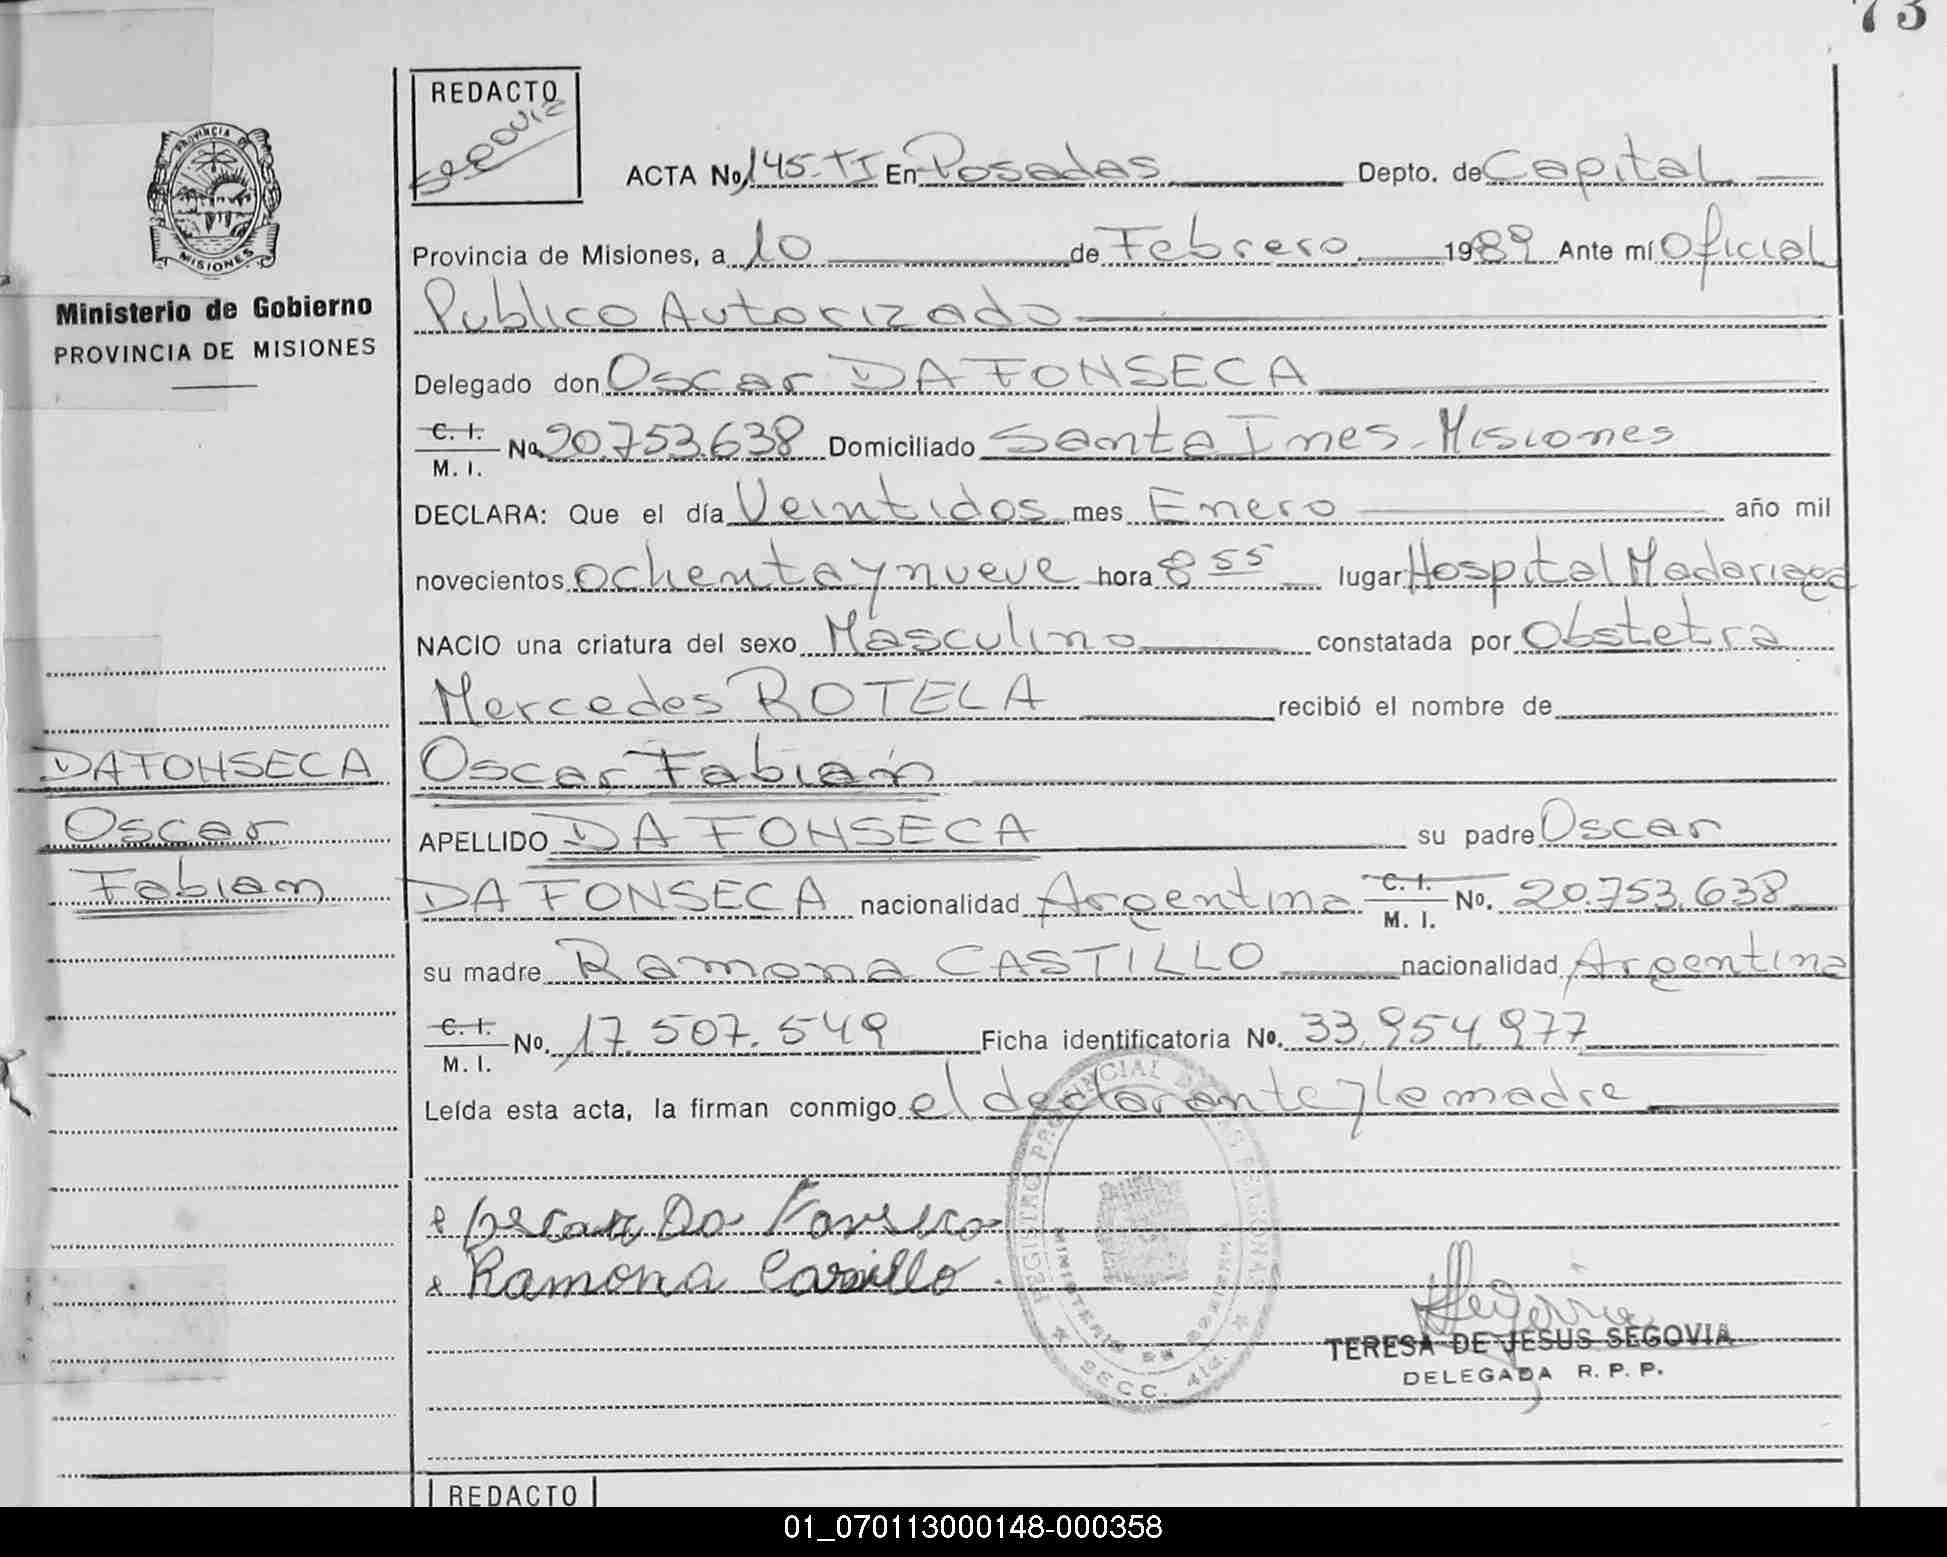 73
REDACTO
Segovia
PROVINCIA DE
MISIONES
Ministerio de Gobierno
PROVINCIA DE MISIONES
ACTA No. 145-TI En Posadas Depto. de Capital
Provincia de Misiones, a 10 de Febrero 1989 Ante mí Oficial
Publico Autorizado
Delegado don Oscar DA FONSECA
C. I. M. I. No. 20.753.638 Domiciliado Santa Ines - Misiones
DECLARA: Que el día Veintidos mes Enero año mil
novecientos ochenta y nueve hora 8 55 lugar Hospital Madariaga
NACIO una criatura del sexo Masculino constatada por Obstetra
Mercedes ROTELA recibió el nombre de
DA FONSECA
Oscar
Fabian
Oscar Fabián
APELLIDO DA FONSECA su padre Oscar
DA FONSECA nacionalidad Argentina C. I. M. I. No. 20.753.638
su madre Ramona CASTILLO nacionalidad Argentina
C. I. M. I. No. 17.507.549 Ficha identificatoria No. 33.954.977
Leída esta acta, la firman conmigo el declarante y la madre
Oscar Da Fonseca
Ramona
REGISTRO PROVINCIAL DE LAS PERSONAS
MINISTERIO DE GOBIERNO
SECC. 4ta.
TERESA DE JESUS SEGOVIA
DELEGADA R. P. P.
REDACTO
01_070113000148-000358